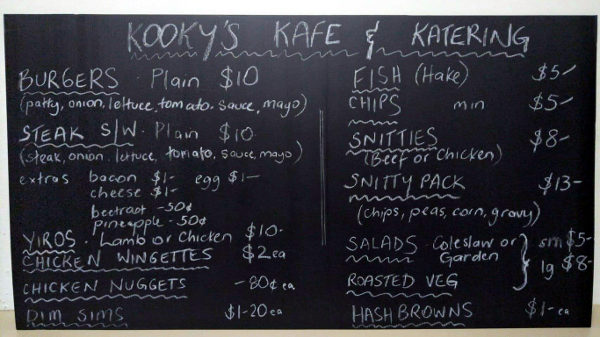 KOOKY'S KAFE & KATERING
BURGERS Plain $10
(patty, onion, lettuce, tomato, sauce, mayo)
STEAK S/W. Plain $10
(steak, onion, lettuce, tomato, sauce, mayo)
extras bacon $1- egg $1-
cheese $1-
beetroot -50¢
pineapple -50¢
YIROS. Lamb or Chicken $10-
CHICKEN WINGETTES $2 ea
CHICKEN NUGGETS -80¢ ea
DIM SIMS $1-20 ea
FISH (Hake) $5-
CHIPS min $5-
SNITTIES $8-
(Beef or Chicken)
SNITTY PACK $13-
(chips, peas, corn, gravy)
SALADS Coleslaw or sm $5-
Garden lg $8-
ROASTED VEG
HASH BROWNS $1-ea